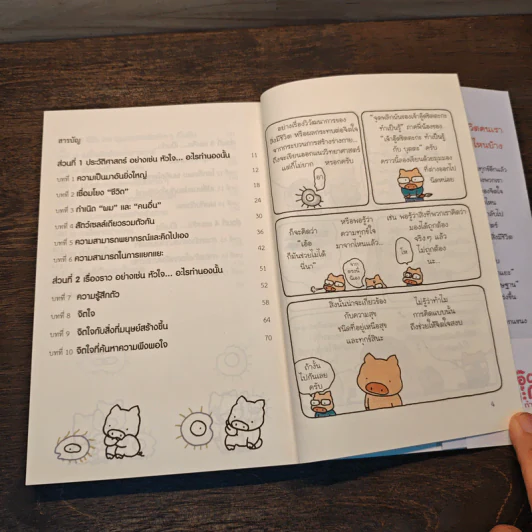 สารบัญ
ส่วนที่ 1 ประวัติศาสตร์ อย่างเช่น หัวใจ... อะไรทำนองนั้น 11
บทที่ 1 ความเป็นมาอันยิ่งใหญ่ 12
บทที่ 2 เชื่อมโยง "ชีวิต" 18
บทที่ 3 กำเนิด "ผม" และ "คนอื่น" 24
บทที่ 4 สัตว์เซลล์เดียวรวมตัวกัน 30
บทที่ 5 ความสามารถพยากรณ์และคิดไปเอง 36
บทที่ 6 ความสามารถในการแยกแยะ 42
ส่วนที่ 2 เรื่องราว อย่างเช่น หัวใจ... อะไรทำนองนั้น 51
บทที่ 7 ความรู้สึกตัว 52
บทที่ 8 จิตใจ 58
บทที่ 9 จิตใจกับสิ่งที่มนุษย์สร้างขึ้น 64
บทที่ 10 จิตใจที่ค้นหาความพึงพอใจ 70
อย่างเรื่องวิวัฒนาการของ
สิ่งมีชีวิต หรือผลกระทบต่อจิตใจ
จากกระบวนการสร้างร่างกาย...
ถึงจะเรียนออกแนววิทยาศาสตร์
แต่ก็ไม่ยาก หรอกครับ
"จุดพลิกผันของเจ้าตู้ดชิด
ทำเป็นรู้" ภาคพี่น้องของ
"เจ้าตู้ด ทำเป็นรู้
กับ บุดดะ" ครับ
คราวนี้ลองเขียนด้วยมุมมอง
ที่ต่างออกไป
นิดหน่อย
ก็จะคิดว่า
"เอ้อ
ก็มันช่วยไม่ได้
นี่นา"
หรือพอรู้ว่า
ความทุกข์ใจ
มาจากไหนแล้ว...
เช่น พอรู้ว่าสิ่งที่พวกเราคิดว่า
มองได้ถูกต้อง
จริงๆ แล้ว
ไม่ถูกต้อง
นะ...
สิ่งนั้นน่าจะเกี่ยวข้อง
กับความสุข
ชนิดที่อยู่เหนือสุข
และทุกข์สินะ
ไม่รู้ว่าทำไม
การคิดแบบนั้น
ถึงช่วยให้จิตใจสงบ
ถ้างั้น
ไปกันเลย
ครับ